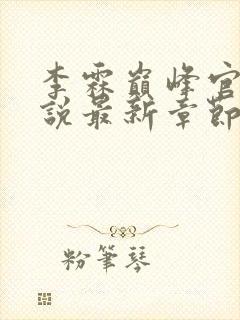 李霖巔峰官
說最新章節
粉筆琴